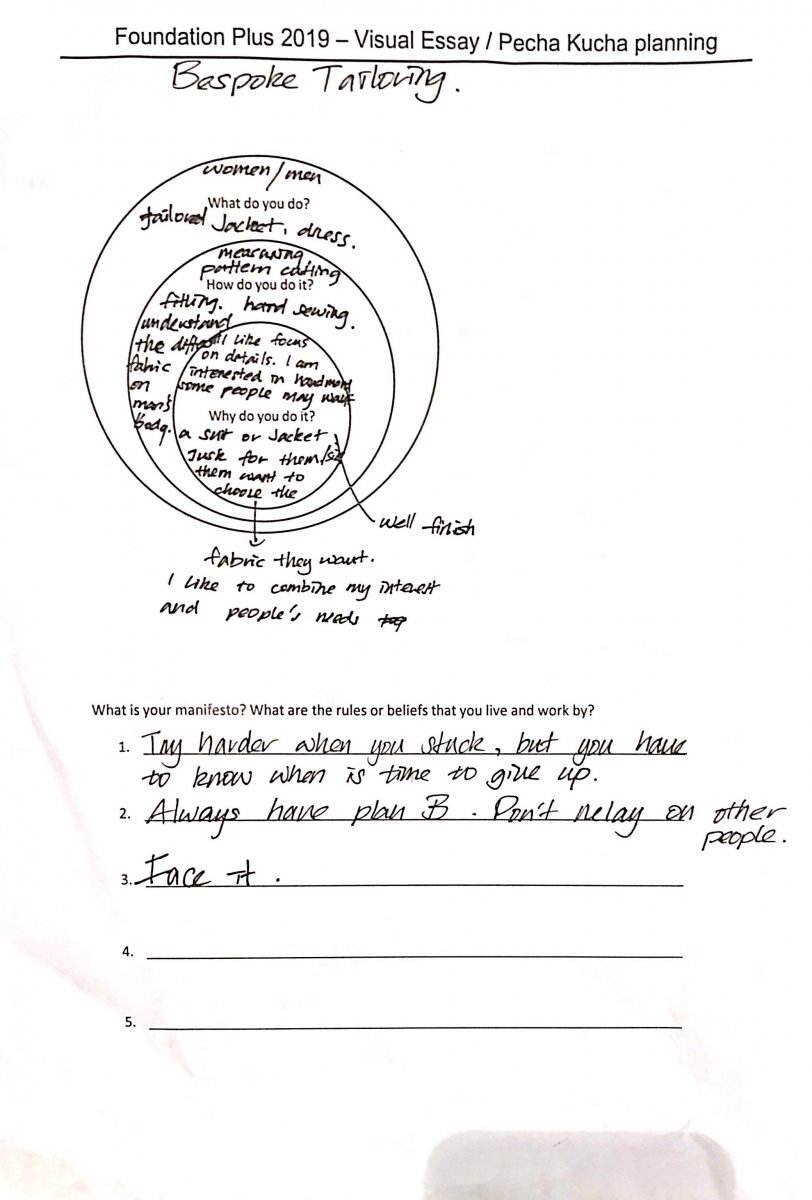 Foundation Plus 2019 – Visual Essay / Pecha Kucha planning
Bespoke Tailoring.
women/men
What do you do?
tailored Jacket, dress.
measuring
pattern cutting
How do you do it?
fitting. hand sewing.
understand
the
fabric
on
man's
body.
I like focus
on details. I am
interested in
some people may want
Why do you do it?
a suit or Jacket,
Just for them/size
them want to
choose the
well finish
fabric they want.
I like to combine my interest
and people's needs
What is your manifesto? What are the rules or beliefs that you live and work by?
1. Try harder when you stuck, but you have
to know when is time to give up.
2. Always have plan B. Don't relay on other
people.
3. Face it.
4.
5.